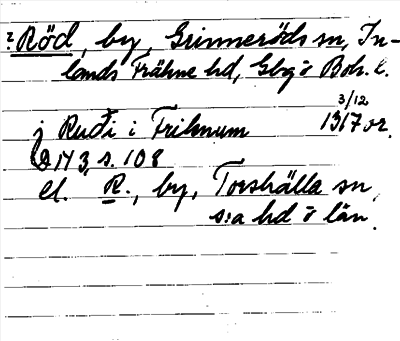 ? Röd, by, Grinneröds sn, In-
lands Fräkne hd, Gbg o Boh. l.
3/12
j Ruði i Friknum 1317 or.
s. 108
el. R., by, Torshälla sn,
s:a hd o län.